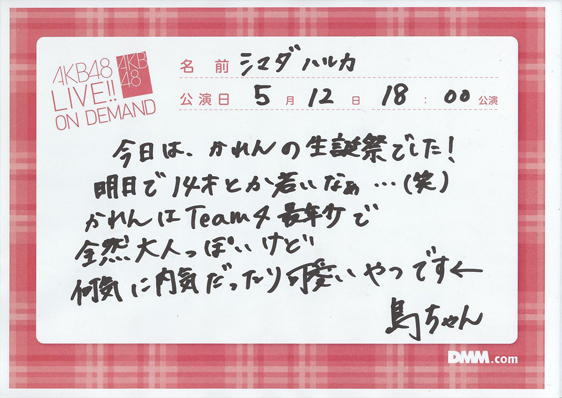 AKB48
LIVE!!
ON DEMAND
AKB
48
名 前 シマダハルカ
公演日 5月 12日 18:00 公演
今日は、かれんの生誕祭でした!
明日で14才とか若いなぁ…(笑)
かれんはTeam4最年少で
全然大人っぽいけど
何気に内気だったり可愛いやつです←
島ちゃん
DMM.com